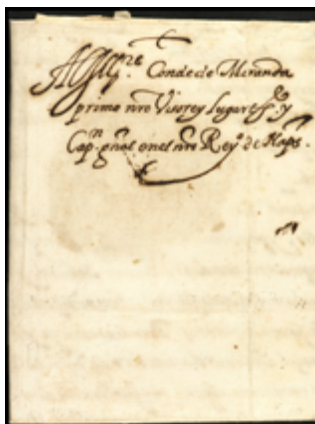 Al Ill.re Conde de Miranda
primo nro Visorey lugarth.te y
Cap.n gñal en el nro Rey.o de Nap.s